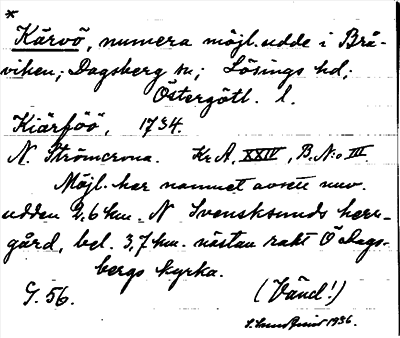 *
Kärvö, numera möjl. udde i Brå-
viken; Dagsberg sn; Lösings hd;
Östergötl. l.
Kiärföö, 1734.
N. Strömcrona. Kr A, XXIV, B. N:o III.
Möjl. har namnet avsett nuv.
udden 2,6 km. N Svensksunds herr-
gård, bel. 3,7 km. nästan rakt Ö Dags-
bergs kyrka.
G. 56. (Vänd!)
1936.